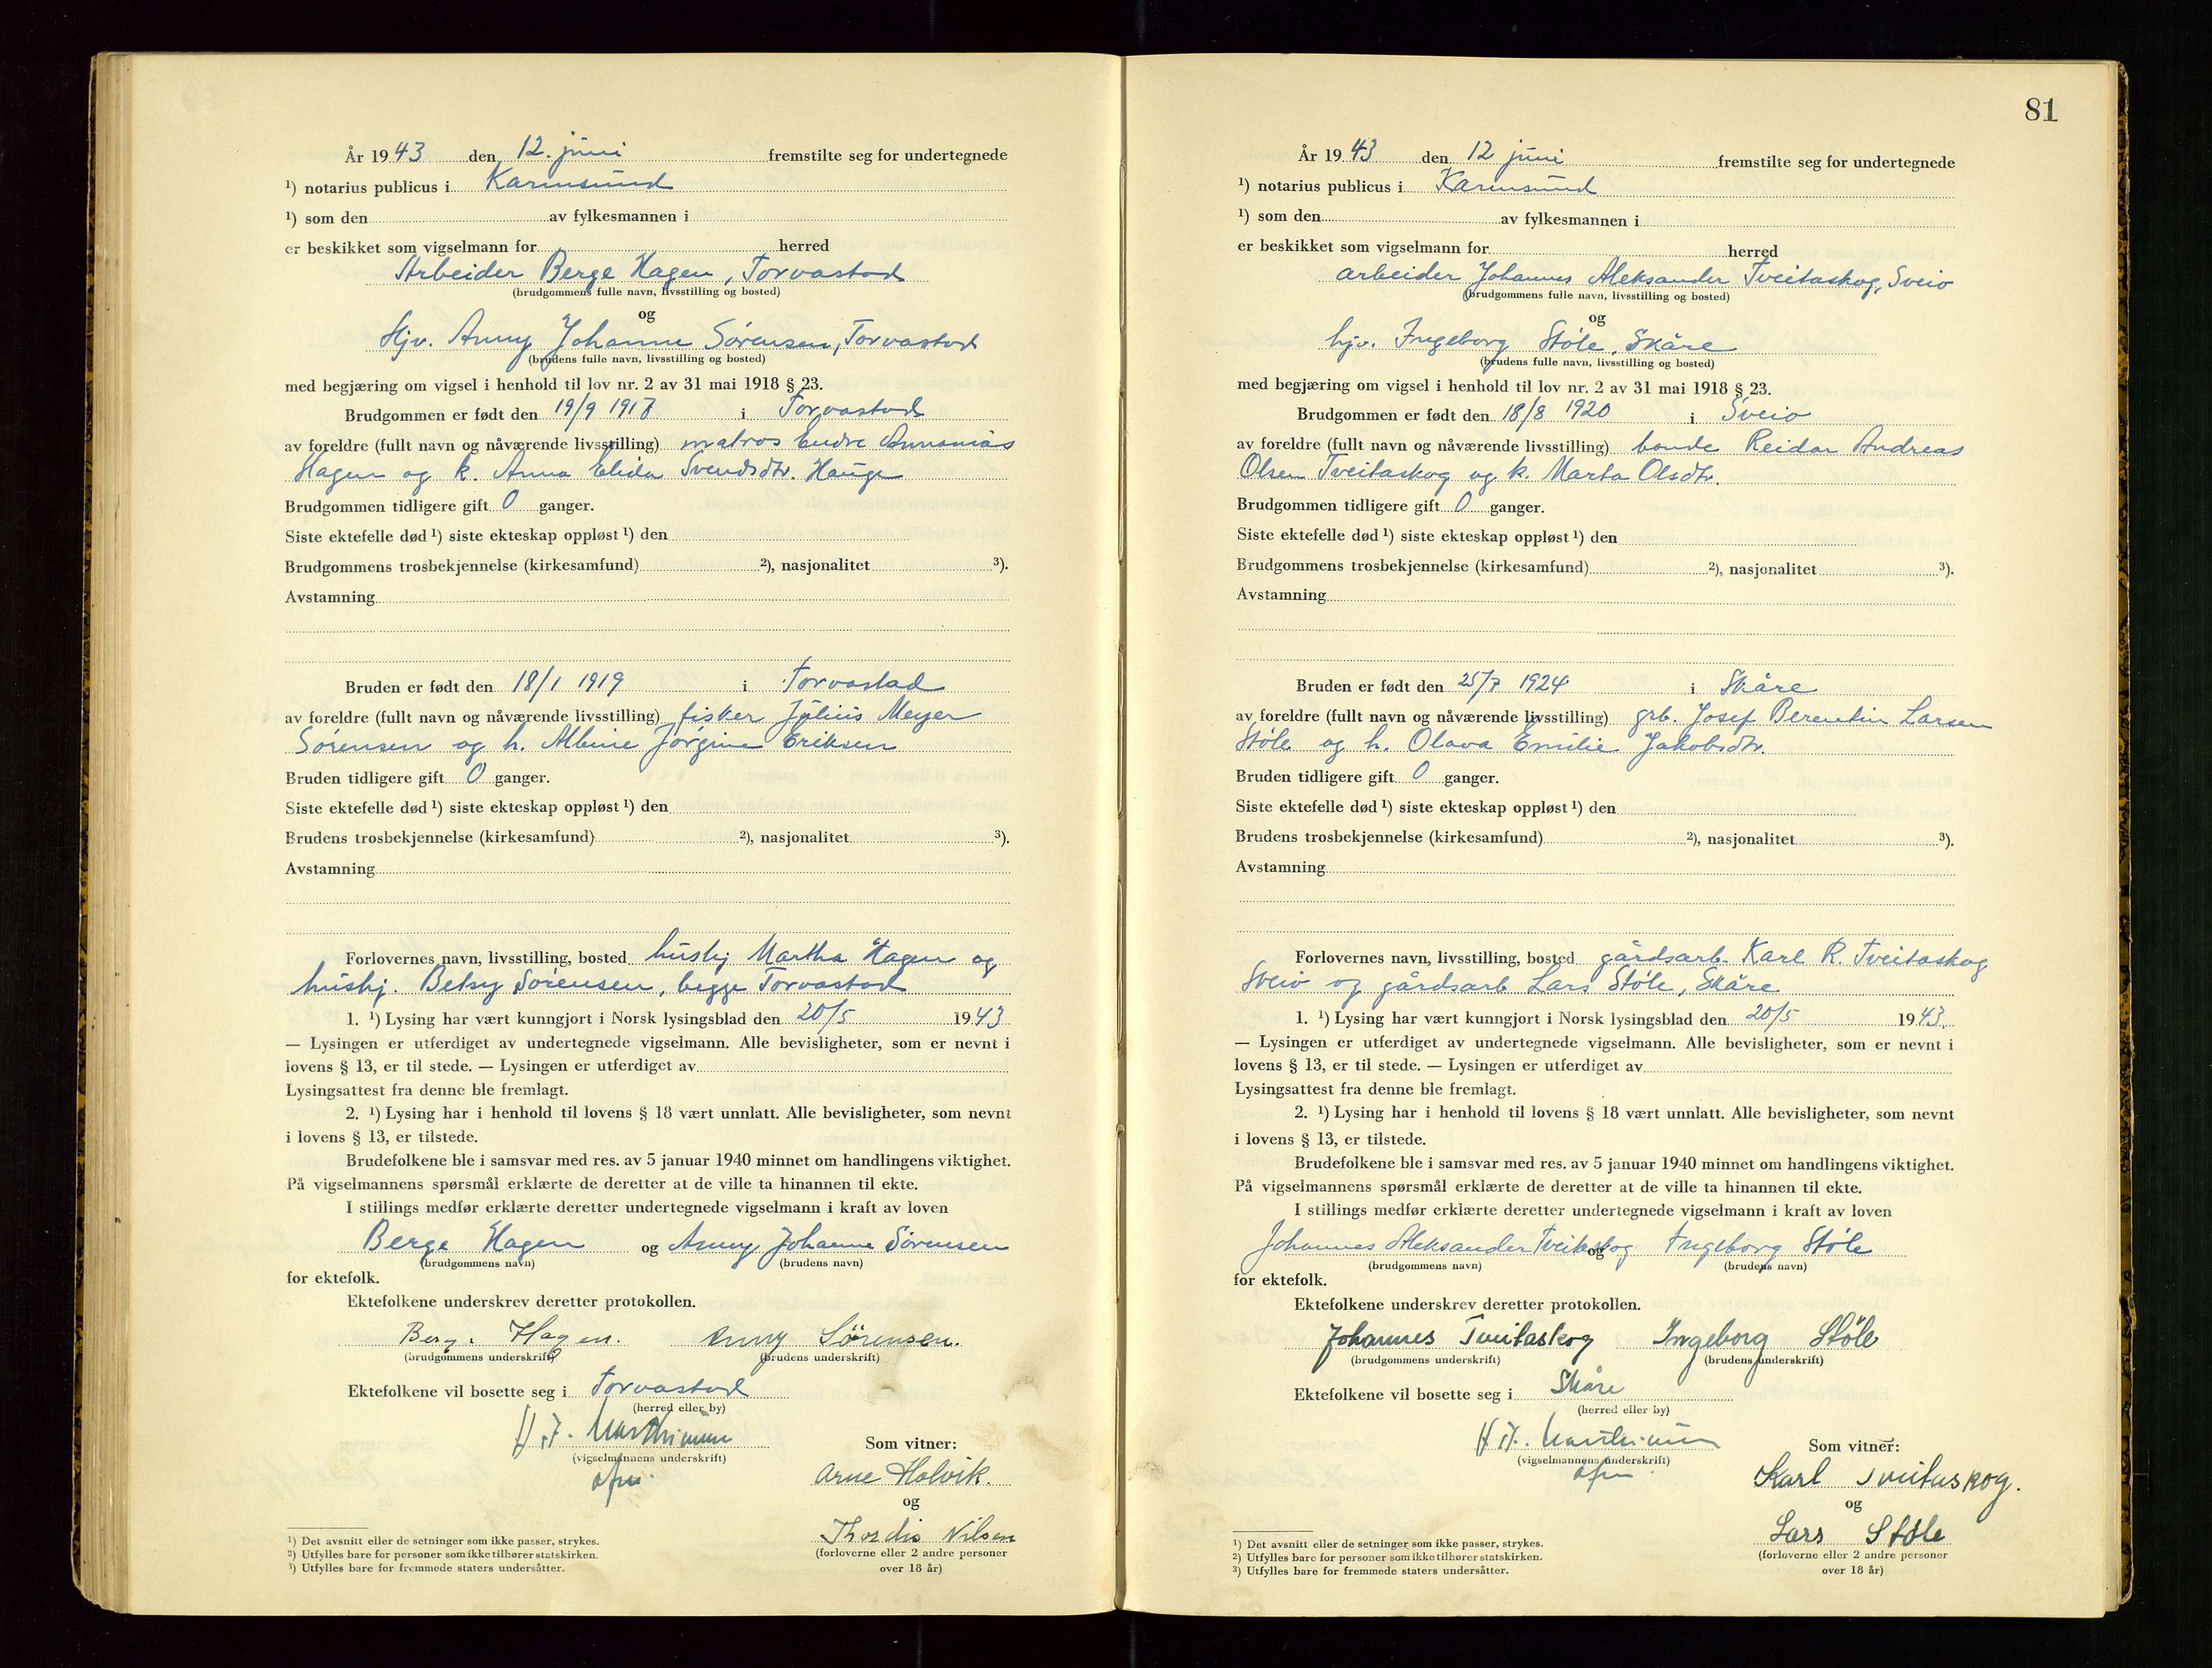 År 1943 den 12. juni fremstilte seg for undertegnede
¹) notarius publicus i Karmsund
¹) som den av fylkesmannen i
er beskikket som vigselmann for herred
Arbeider Berge Hagen, Torvastad
(brudgommens fulle navn, livsstilling og bosted)
og
Hjv. Anny Johanne Sørensen, Torvastad
(brudens fulle navn, livsstilling og bosted)
med begjæring om vigsel i henhold til lov nr. 2 av 31 mai 1918 § 23.
Brudgommen er født den 19/9 1917 i Torvastad
av foreldre (fullt navn og nåværende livsstilling) matros Endre Annanias
Hagen og k. Anna Elida Svendsdtr. Hauge
Brudgommen tidligere gift 0 ganger.
Siste ektefelle død ¹) siste ekteskap oppløst ¹) den
Brudgommens trosbekjennelse (kirkesamfund) ²), nasjonalitet ³).
Avstamning
Bruden er født den 18/1 1919 i Torvastad
av foreldre (fullt navn og nåværende livsstilling) fisker Julius Meyer
Sørensen og h. Albine Jørgine Eriksen
Bruden tidligere gift 0 ganger.
Siste ektefelle død ¹) siste ekteskap oppløst ¹) den
Brudens trosbekjennelse (kirkesamfund) ²), nasjonalitet ³).
Avstamning
Forlovernes navn, livsstilling, bosted hushj Martha Hagen og
hushj. Betsy Sørensen, begge Torvastad
1. ¹) Lysing har vært kunngjort i Norsk lysingsblad den 20/5 1943
— Lysingen er utferdiget av undertegnede vigselmann. Alle bevisligheter, som er nevnt i
lovens § 13, er til stede. — Lysingen er utferdiget av
Lysingsattest fra denne ble fremlagt.
2. ¹) Lysing har i henhold til lovens § 18 vært unnlatt. Alle bevisligheter, som nevnt
i lovens § 13, er tilstede.
Brudefolkene ble i samsvar med res. av 5 januar 1940 minnet om handlingens viktighet.
På vigselmannens spørsmål erklærte de deretter at de ville ta hinannen til ekte.
I stillings medfør erklærte deretter undertegnede vigselmann i kraft av loven
Berge Hagen og Anny Johanne Sørensen
(brudgommens navn) (brudens navn)
for ektefolk.
Ektefolkene underskrev deretter protokollen.
Berge Hagen. Anny Sörensen.
(brudgommens underskrift) (brudens underskrift)
Ektefolkene vil bosette seg i Torvastad
(herred eller by)
(vigselmannens underskrift)
Som vitner:
Arne Holvik.
og
Thordis Nilsen
(forloverne eller 2 andre personer
over 18 år)
¹) Det avsnitt eller de setninger som ikke passer, strykes.
²) Utfylles bare for personer som ikke tilhører statskirken.
³) Utfylles bare for fremmede staters undersåtter.
81
År 1943 den 12 juni fremstilte seg for undertegnede
¹) notarius publicus i Karmsund
¹) som den av fylkesmannen i
er beskikket som vigselmann for herred
arbeider Johannes Aleksander Tveitaskog, Sveio
(brudgommens fulle navn, livsstilling og bosted)
og
hjv. Ingeborg Støle, Skåre
(brudens fulle navn, livsstilling og bosted)
med begjæring om vigsel i henhold til lov nr. 2 av 31 mai 1918 § 23.
Brudgommen er født den 18/8 1920 i Sveio
av foreldre (fullt navn og nåværende livsstilling) bonde Reidar Andreas
Olsen Tveitaskog og k. Marta Olsdtr.
Brudgommen tidligere gift 0 ganger.
Siste ektefelle død ¹) siste ekteskap oppløst ¹) den
Brudgommens trosbekjennelse (kirkesamfund) ²), nasjonalitet ³).
Avstamning
Bruden er født den 25/7 1924 i Skåre
av foreldre (fullt navn og nåværende livsstilling) grb. Josef Berentin Larsen
Støle og h. Olava Emilie Jakobsdtr.
Bruden tidligere gift 0 ganger.
Siste ektefelle død ¹) siste ekteskap oppløst ¹) den
Brudens trosbekjennelse (kirkesamfund) ²), nasjonalitet ³).
Avstamning
Forlovernes navn, livsstilling, bosted gårdsarb. Karl R. Tveitaskog
Sveio og gårdsarb Lars Støle, Skåre
1. ¹) Lysing har vært kunngjort i Norsk lysingsblad den 20/5 1943.
— Lysingen er utferdiget av undertegnede vigselmann. Alle bevisligheter, som er nevnt i
lovens § 13, er til stede. — Lysingen er utferdiget av
Lysingsattest fra denne ble fremlagt.
2. ¹) Lysing har i henhold til lovens § 18 vært unnlatt. Alle bevisligheter, som nevnt
i lovens § 13, er tilstede.
Brudefolkene ble i samsvar med res. av 5 januar 1940 minnet om handlingens viktighet.
På vigselmannens spørsmål erklærte de deretter at de ville ta hinannen til ekte.
I stillings medfør erklærte deretter undertegnede vigselmann i kraft av loven
Johannes Aleksander Tveitaskog og Ingeborg Støle
(brudgommens navn) (brudens navn)
for ektefolk.
Ektefolkene underskrev deretter protokollen.
Johannes Tveitaskog Ingeborg Støle
(brudgommens underskrift) (brudens underskrift)
Ektefolkene vil bosette seg i Skåre
(herred eller by)
(vigselmannens underskrift)
Som vitner:
Karl Tveitaskog.
og
Lars Støle
(forloverne eller 2 andre personer
over 18 år)
¹) Det avsnitt eller de setninger som ikke passer, strykes.
²) Utfylles bare for personer som ikke tilhører statskirken.
³) Utfylles bare for fremmede staters undersåtter.